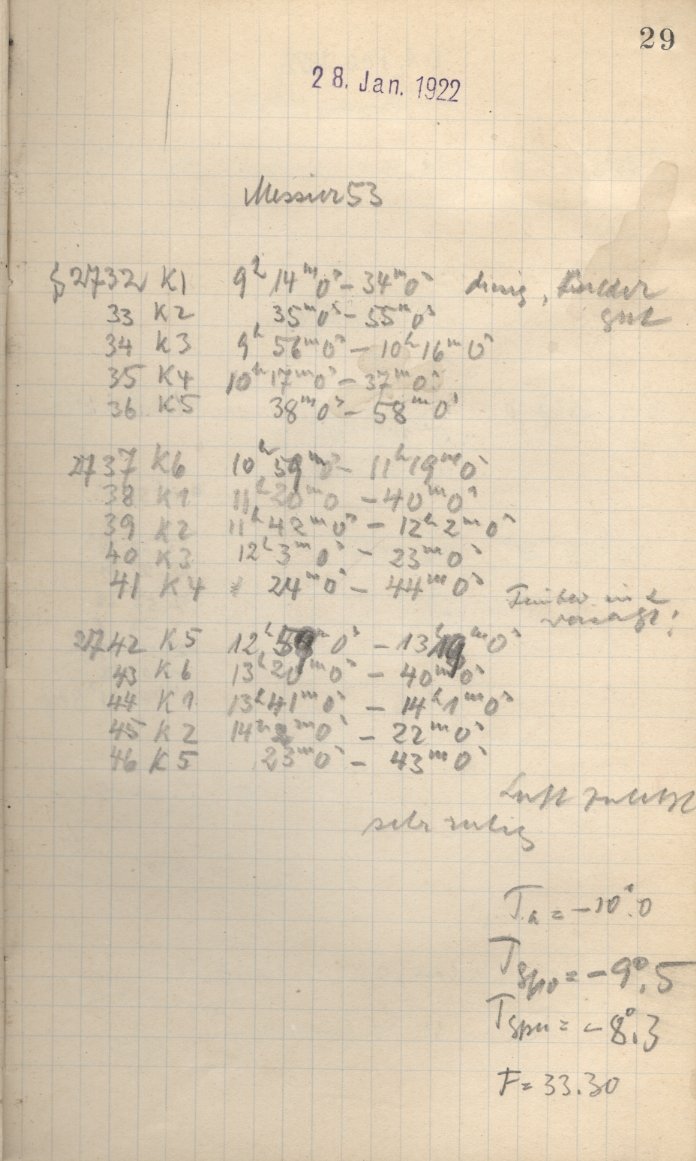 29
28. Jan. 1922
Messier 53
S 2732 K1 9h 14m 0s – 34m 0s dunsig, Bilder
gut
33 K2 35m 0s – 55m 0s
34 K3 9h 56m 0s – 10h 16m 0s
35 K4 10h 17m 0s – 37m 0s
36 K5 38m 0s – 58m 0s
2737 K6 10h 59m 0s – 11h 19m 0s
38 K1 11h 20m 0 – 40m 0s
39 K2 11h 42m 0s – 12h 2m 0s
40 K3 12h 3m 0s – 23m 0s
41 K4 24m 0s – 44m 0s
in
versagt!
2742 K5 12h 59m 0s – 13h 19m 0s
43 K6 13h 20m 0s – 40m 0s
44 K1 13h 41m 0s – 14h 1m 0s
45 K2 14h 2m 0s – 22m 0s
46 K5 23m 0s – 43m 0s
Luft zuletzt
sehr ruhig
Ta = –10°.0
TSpo = –9°.5
TSpu = –8°.3
F = 33.30